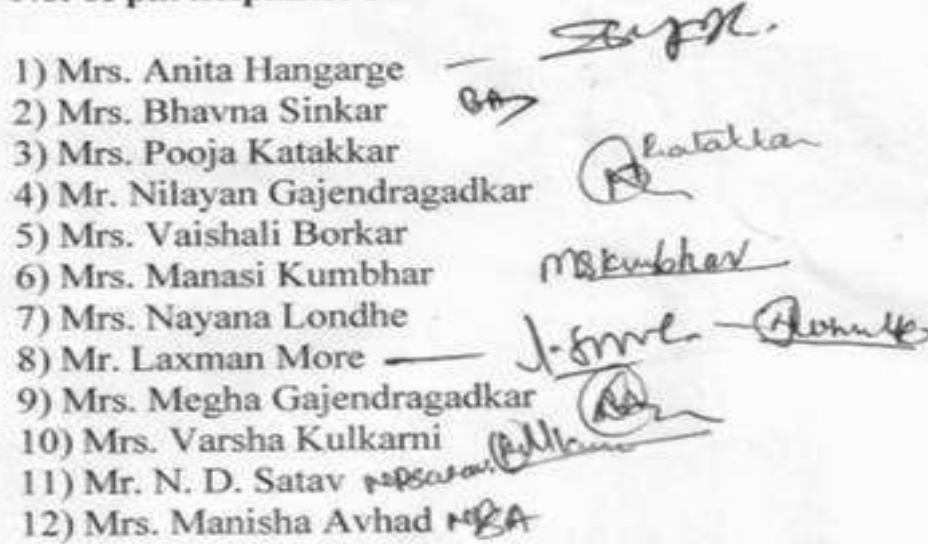 1) Mrs. Anita Hangarge –
2) Mrs. Bhavna Sinkar
3) Mrs. Pooja Katakkar Katakkar
4) Mr. Nilayan Gajendragadkar
5) Mrs. Vaishali Borkar
6) Mrs. Manasi Kumbhar MSKumbhar
7) Mrs. Nayana Londhe
8) Mr. Laxman More —
9) Mrs. Megha Gajendragadkar
10) Mrs. Varsha Kulkarni
11) Mr. N. D. Satav NDSatav
12) Mrs. Manisha Avhad